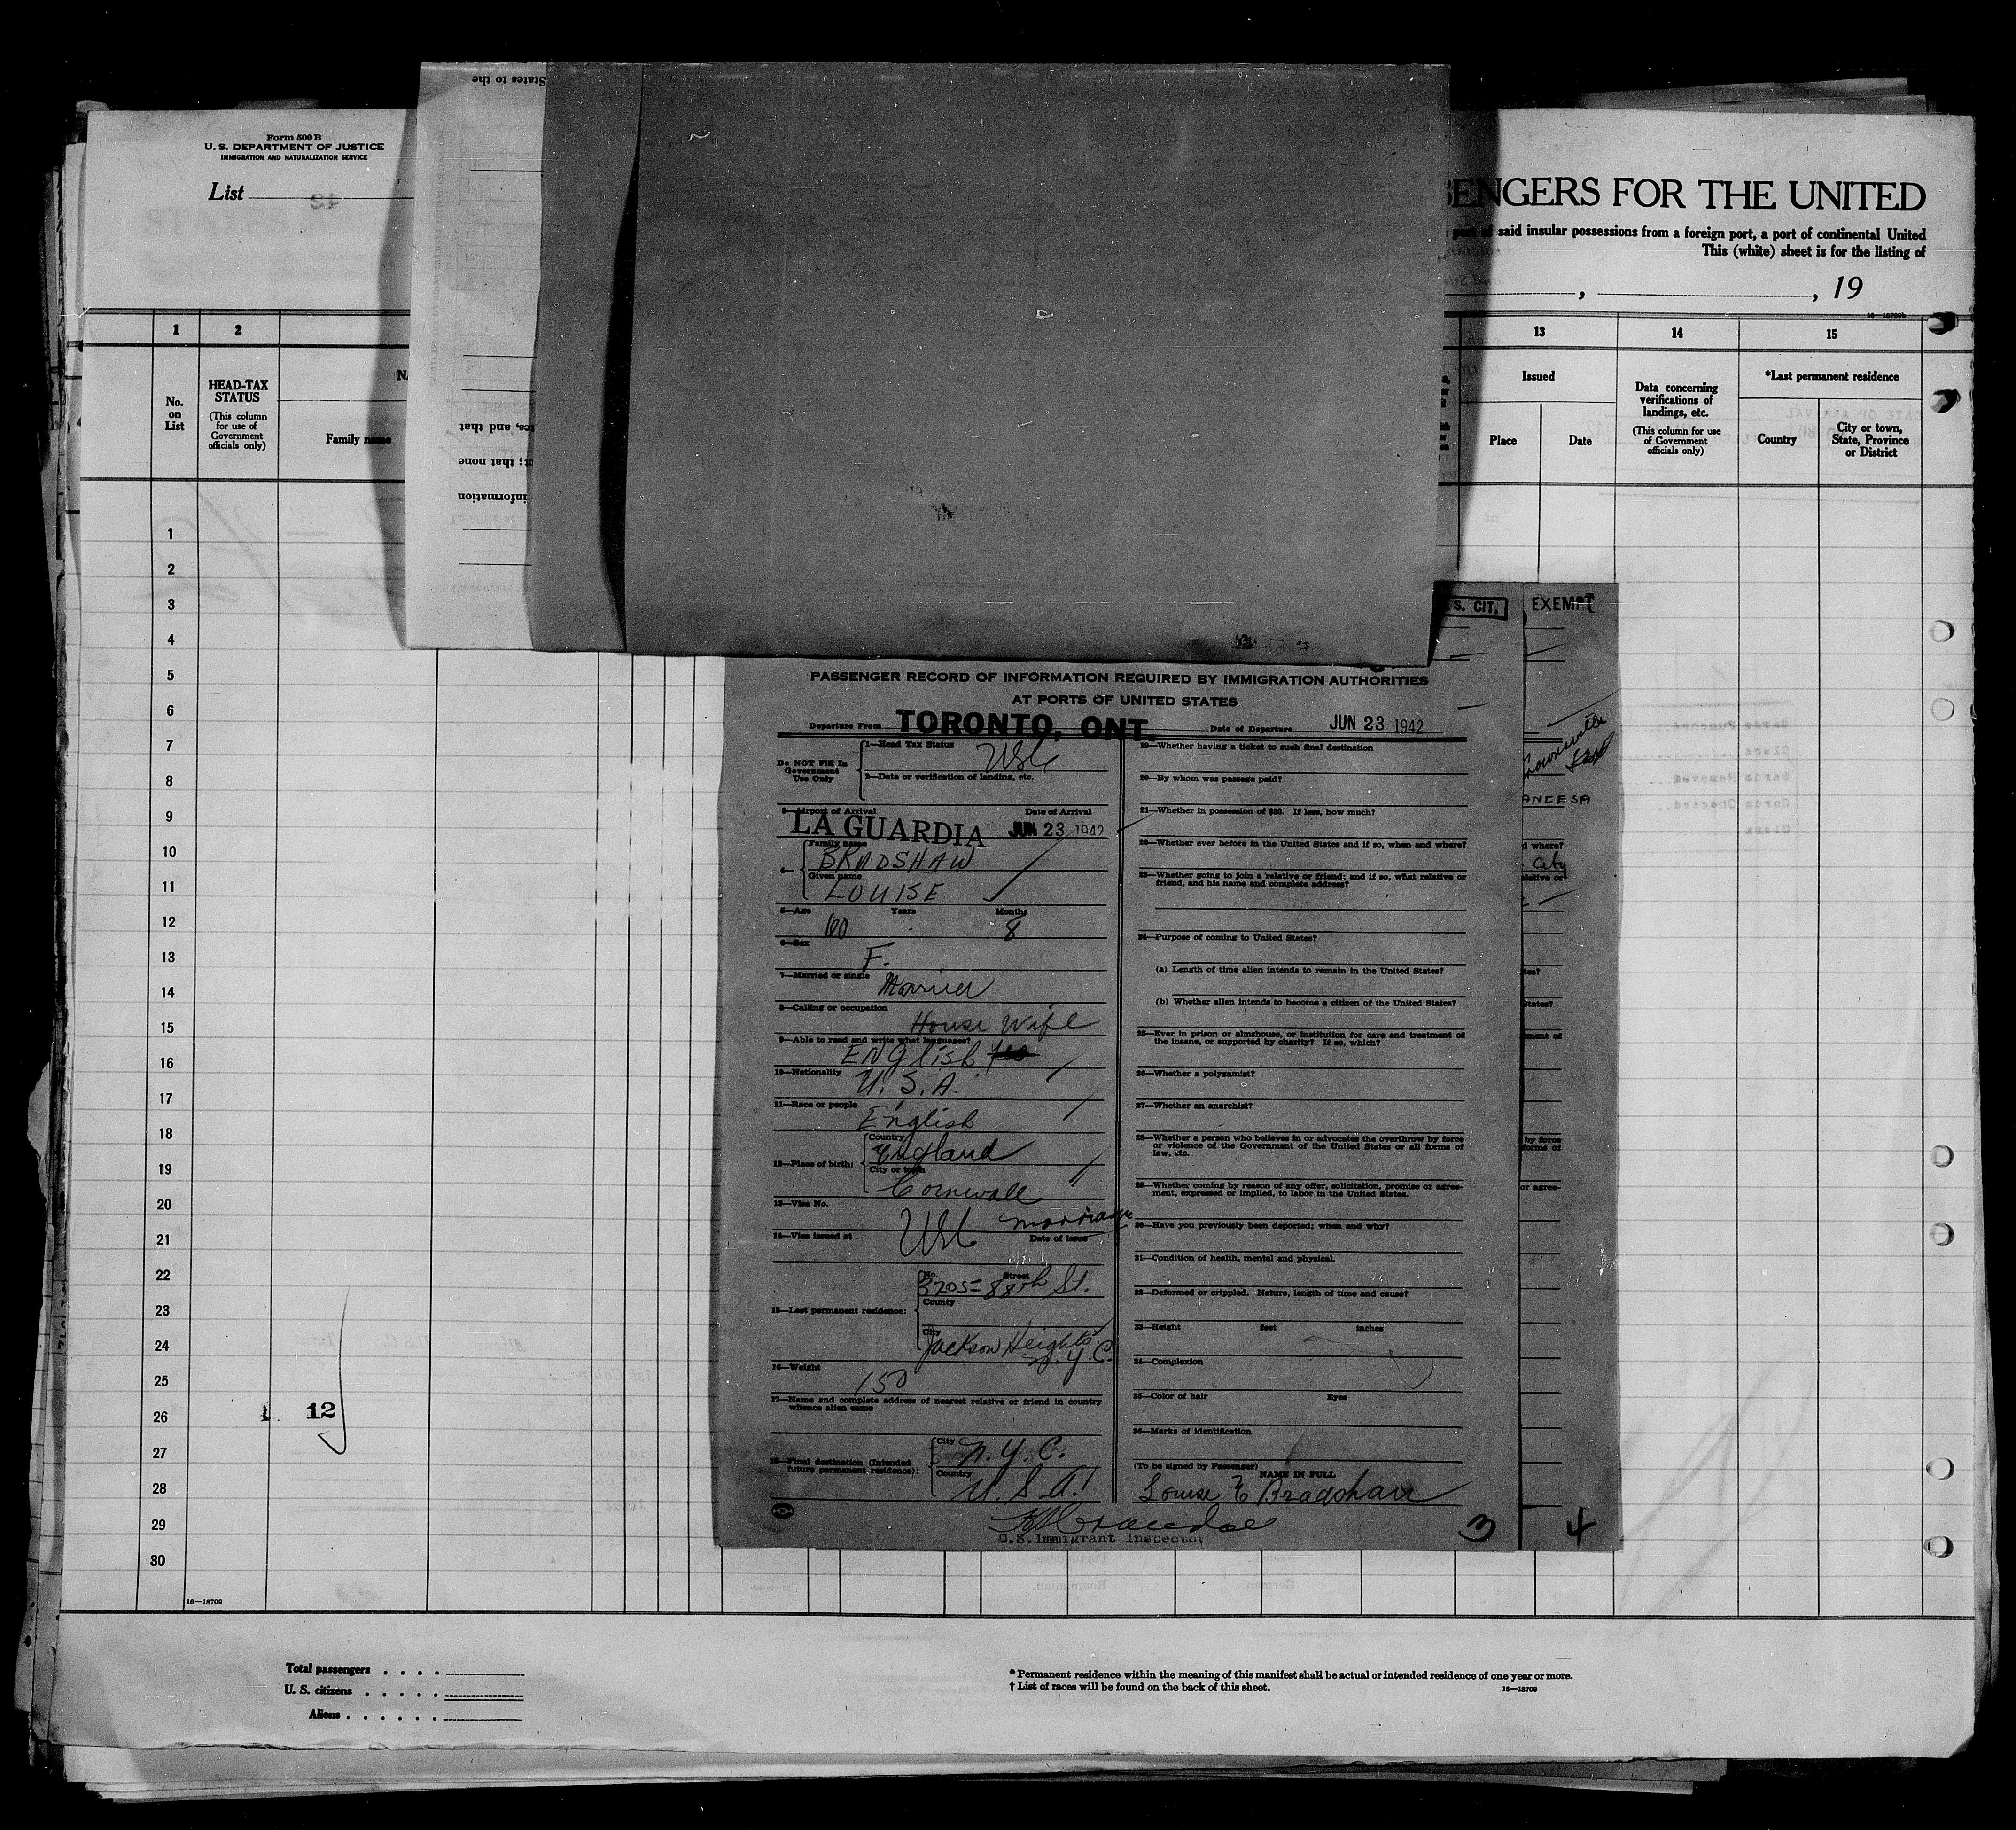 Form 500 B
U. S. DEPARTMENT OF JUSTICE
IMMIGRATION AND NATURALIZATION SERVICE
List
States to the
and that
that none
information
ENGERS FOR THE UNITED
of said insular possessions from a foreign port, a port of continental United
This (white) sheet is for the listing of
, , 19
1 2 13 14 15
No. on List
HEAD-TAX STATUS
(This column for use of Government officials only)
Family name
Issued
Place Date
Data concerning verifications of landings, etc.
(This column for use of Government officials only)
*Last permanent residence
Country
City or town, State, Province or District
1
2
3
4
5
6
7
8
9
10
11
12
13
14
15
16
17
18
19
20
21
22
23
24
25
26
27
28
29
30
12
16—18709
S. CIT.
EXEMPT
PASSENGER RECORD OF INFORMATION REQUIRED BY IMMIGRATION AUTHORITIES
AT PORTS OF UNITED STATES
Departure From TORONTO, ONT. Date of Departure JUN 23 1942
Do NOT Fill In Government Use Only
1—Head Tax Status USC
2—Data or verification of landing, etc.
3—Airport of Arrival Date of Arrival
LA GUARDIA JUN 23 1942
4— Family name
BRADSHAW
Given name
LOUISE
5—Age Years Months
60 8
6—Sex
F.
7—Married or single
Married
8—Calling or occupation
House Wife
9—Able to read and write what languages?
ENglish yes
10—Nationality
U.S.A.
11—Race or people
English
12—Place of birth: Country
England
City or town
Cornwall
13—Visa No.
USC marriage
14—Visa issued at Date of issue
15—Last permanent residence: No. Street
3205 = 88th St.
County
City
Jackson Heights
N.Y.C.
16—Weight
150
17—Name and complete address of nearest relative or friend in country
whence alien came
18—Final destination (Intended
future permanent residence): City
N.Y.C.
Country
U.S.A.
19—Whether having a ticket to such final destination
20—By whom was passage paid?
21—Whether in possession of $50. If less, how much?
22—Whether ever before in the United States and if so, when and where?
23—Whether going to join a relative or friend; and if so, what relative or
friend, and his name and complete address?
24—Purpose of coming to United States?
(a) Length of time alien intends to remain in the United States?
(b) Whether alien intends to become a citizen of the United States?
25—Ever in prison or almshouse, or institution for care and treatment of
the insane, or supported by charity? If so, which?
26—Whether a polygamist?
27—Whether an anarchist?
28—Whether a person who believes in or advocates the overthrow by force
or violence of the Government of the United States or all forms of
law, etc.
29—Whether coming by reason of any offer, solicitation, promise or agree-
ment, expressed or implied, to labor in the United States.
30—Have you previously been deported; when and why?
31—Condition of health, mental and physical.
32—Deformed or crippled. Nature, length of time and cause?
33—Height feet inches
34—Complexion
35—Color of hair Eyes
36—Marks of identification
(To be signed by Passenger)
NAME IN FULL
Louise E Bradshaw
U.S. Immigrant Inspector
3
ANCESA
d where?
City
relative or
tes?
States?
ment of
by force
forms of
or agree-
4
Total passengers . . . .
U. S. citizens . . . . .
Aliens . . . . . .
* Permanent residence within the meaning of this manifest shall be actual or intended residence of one year or more.
† List of races will be found on the back of this sheet.
16—18709